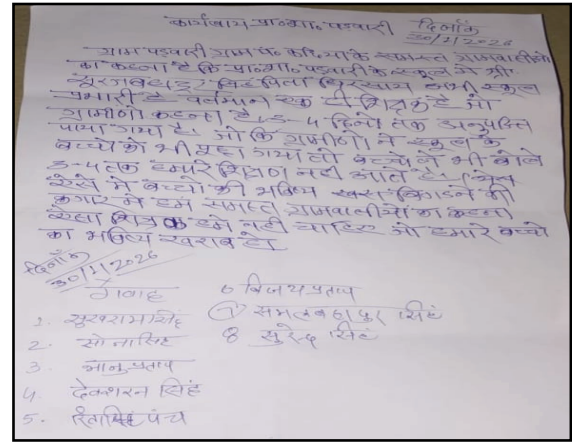 कार्यालय प्रा०शा० पडवारी दिनाँक
30/1/2026
ग्राम पडवारी ग्राम पं० के समस्त ग्रामवासीयो
का कहना है कि प्रा०शा० पडवारी के स्कूल में श्री
सूरजबहादुर पिता अभी स्कूल
प्रभारी है वर्तमान एक ही शिक्षक है जो
ग्रामीणो कहना है 3-4 दिनो तक अनुपस्थि
पाया गया है। जो कि ग्रामीणो ने स्कूल के
बच्चो को भी पूछा गया तो बच्चो ने भी बोले
3-4 तक हमारे शिक्षक नही आते है। अब
ऐसे मे बच्चो की भविष्य बिगडने की
कगार मे हम समस्त ग्रामवासीयो का कहना
ऐसा शिक्षक हमे नही चाहिए जो हमारे बच्चो
का भविष्य खराब हो
दिनाँक
30/1/2026
गवाह
1. सुखराम सिंह
2. सोनासिंह
3. भानु प्रताप
4 देवशरन सिंह
5. पंच
6 विजय प्रताप
7 सिंह
8 सुरेन्द्र सिंह